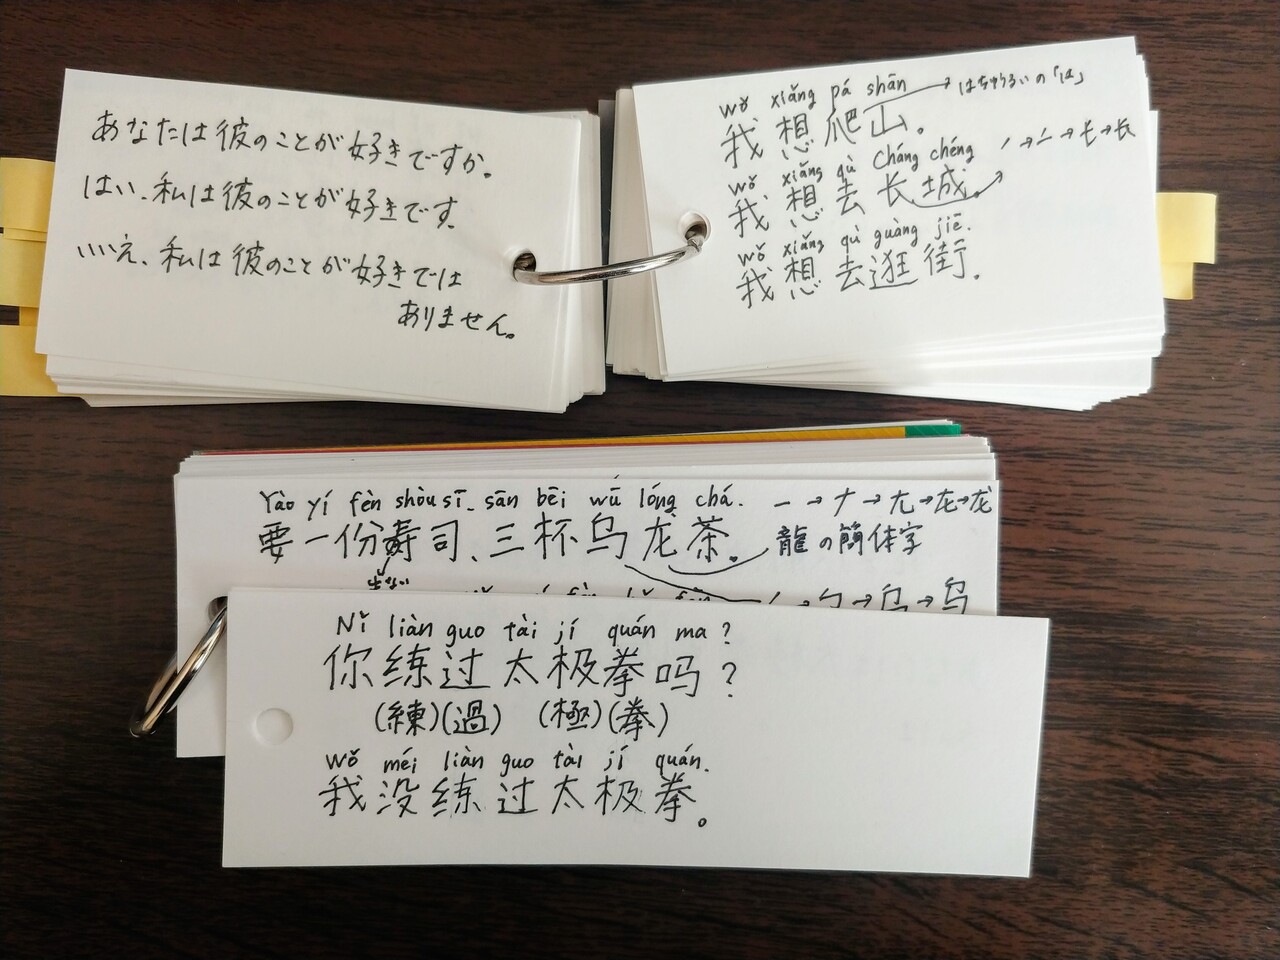 あなたは彼のことが好きですか。
はい、私は彼のことが好きです。
いいえ、私は彼のことが好きでは
ありません。
wǒ xiǎng pá shān → はちゅうるいの「は」
我想爬山。
wǒ xiǎng qù Cháng chéng ノ→𠂉→长→长
我想去长城。
wǒ xiǎng qù guàng jiē.
我想去逛街。
Yào yí fèn shòu sī、sān bēi wū lóng chá. 一→ナ→尢→龙→龙
要一份寿司、三杯乌龙茶。 龍の簡体字
Nǐ liàn guo tài jí quán ma?
你练过太极拳吗?
(練)(過) (極)(拳)
wǒ méi liàn guo tài jí quán.
我没练过太极拳。